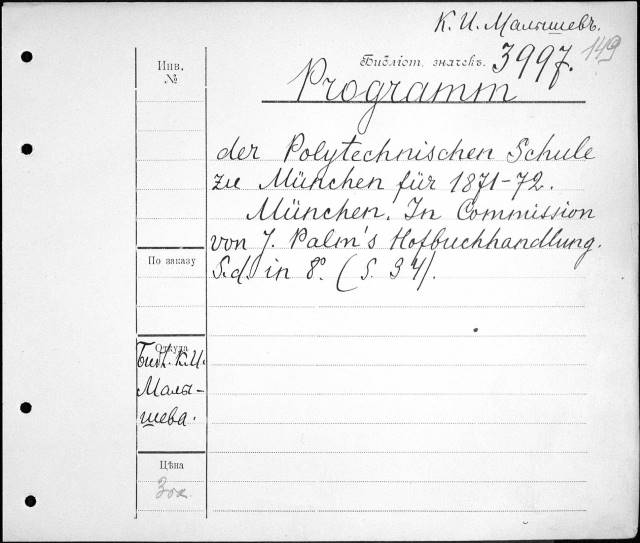 К. И. Малышевъ.
149
Инв.
№
Библіот. значекъ. 3997.
Programm
der Polytechnischen Schule
zu München für 1871-72.
München. In Commission
von J. Palm's Hofbuchhandlung.
По заказу
S.d. in 8º. (S. 34).
Откуда
Библ. К.И.
Малы-
шева.
Цѣна